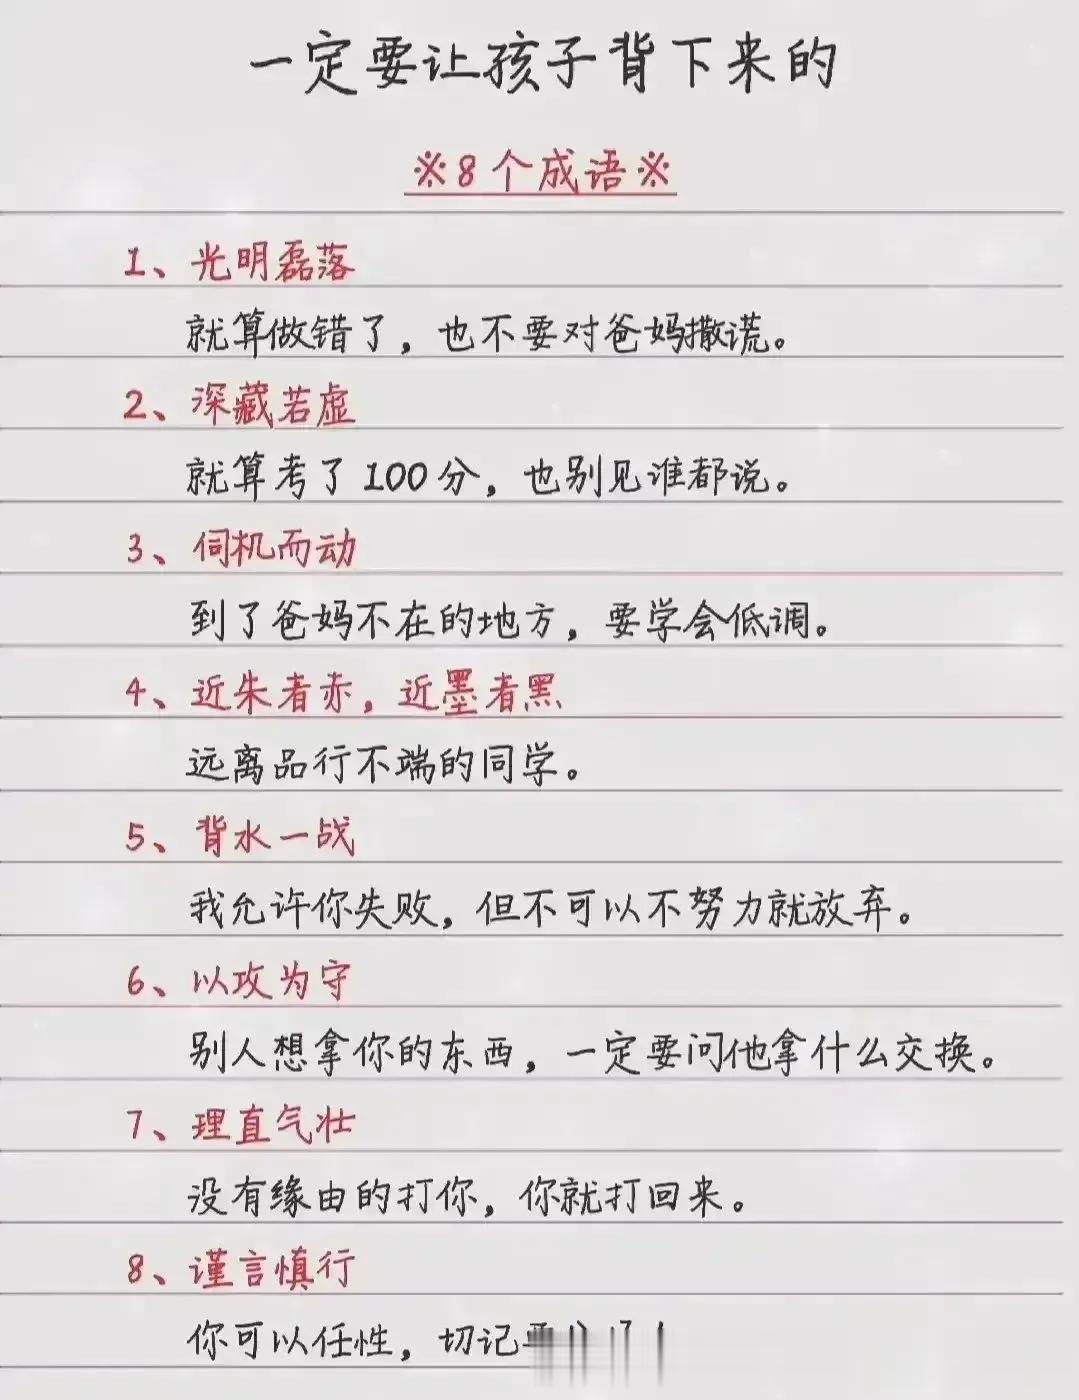 一定要让孩子背下来的
※8个成语※
1、光明磊落
就算做错了，也不要对爸妈撒谎。
2、深藏若虚
就算考了100分，也别见谁都说。
3、伺机而动
到了爸妈不在的地方，要学会低调。
4、近朱者赤，近墨者黑
远离品行不端的同学。
5、背水一战
我允许你失败，但不可以不努力就放弃。
6、以攻为守
别人想拿你的东西，一定要问他拿什么交换。
7、理直气壮
没有缘由的打你，你就打回来。
8、谨言慎行
你可以任性，切记